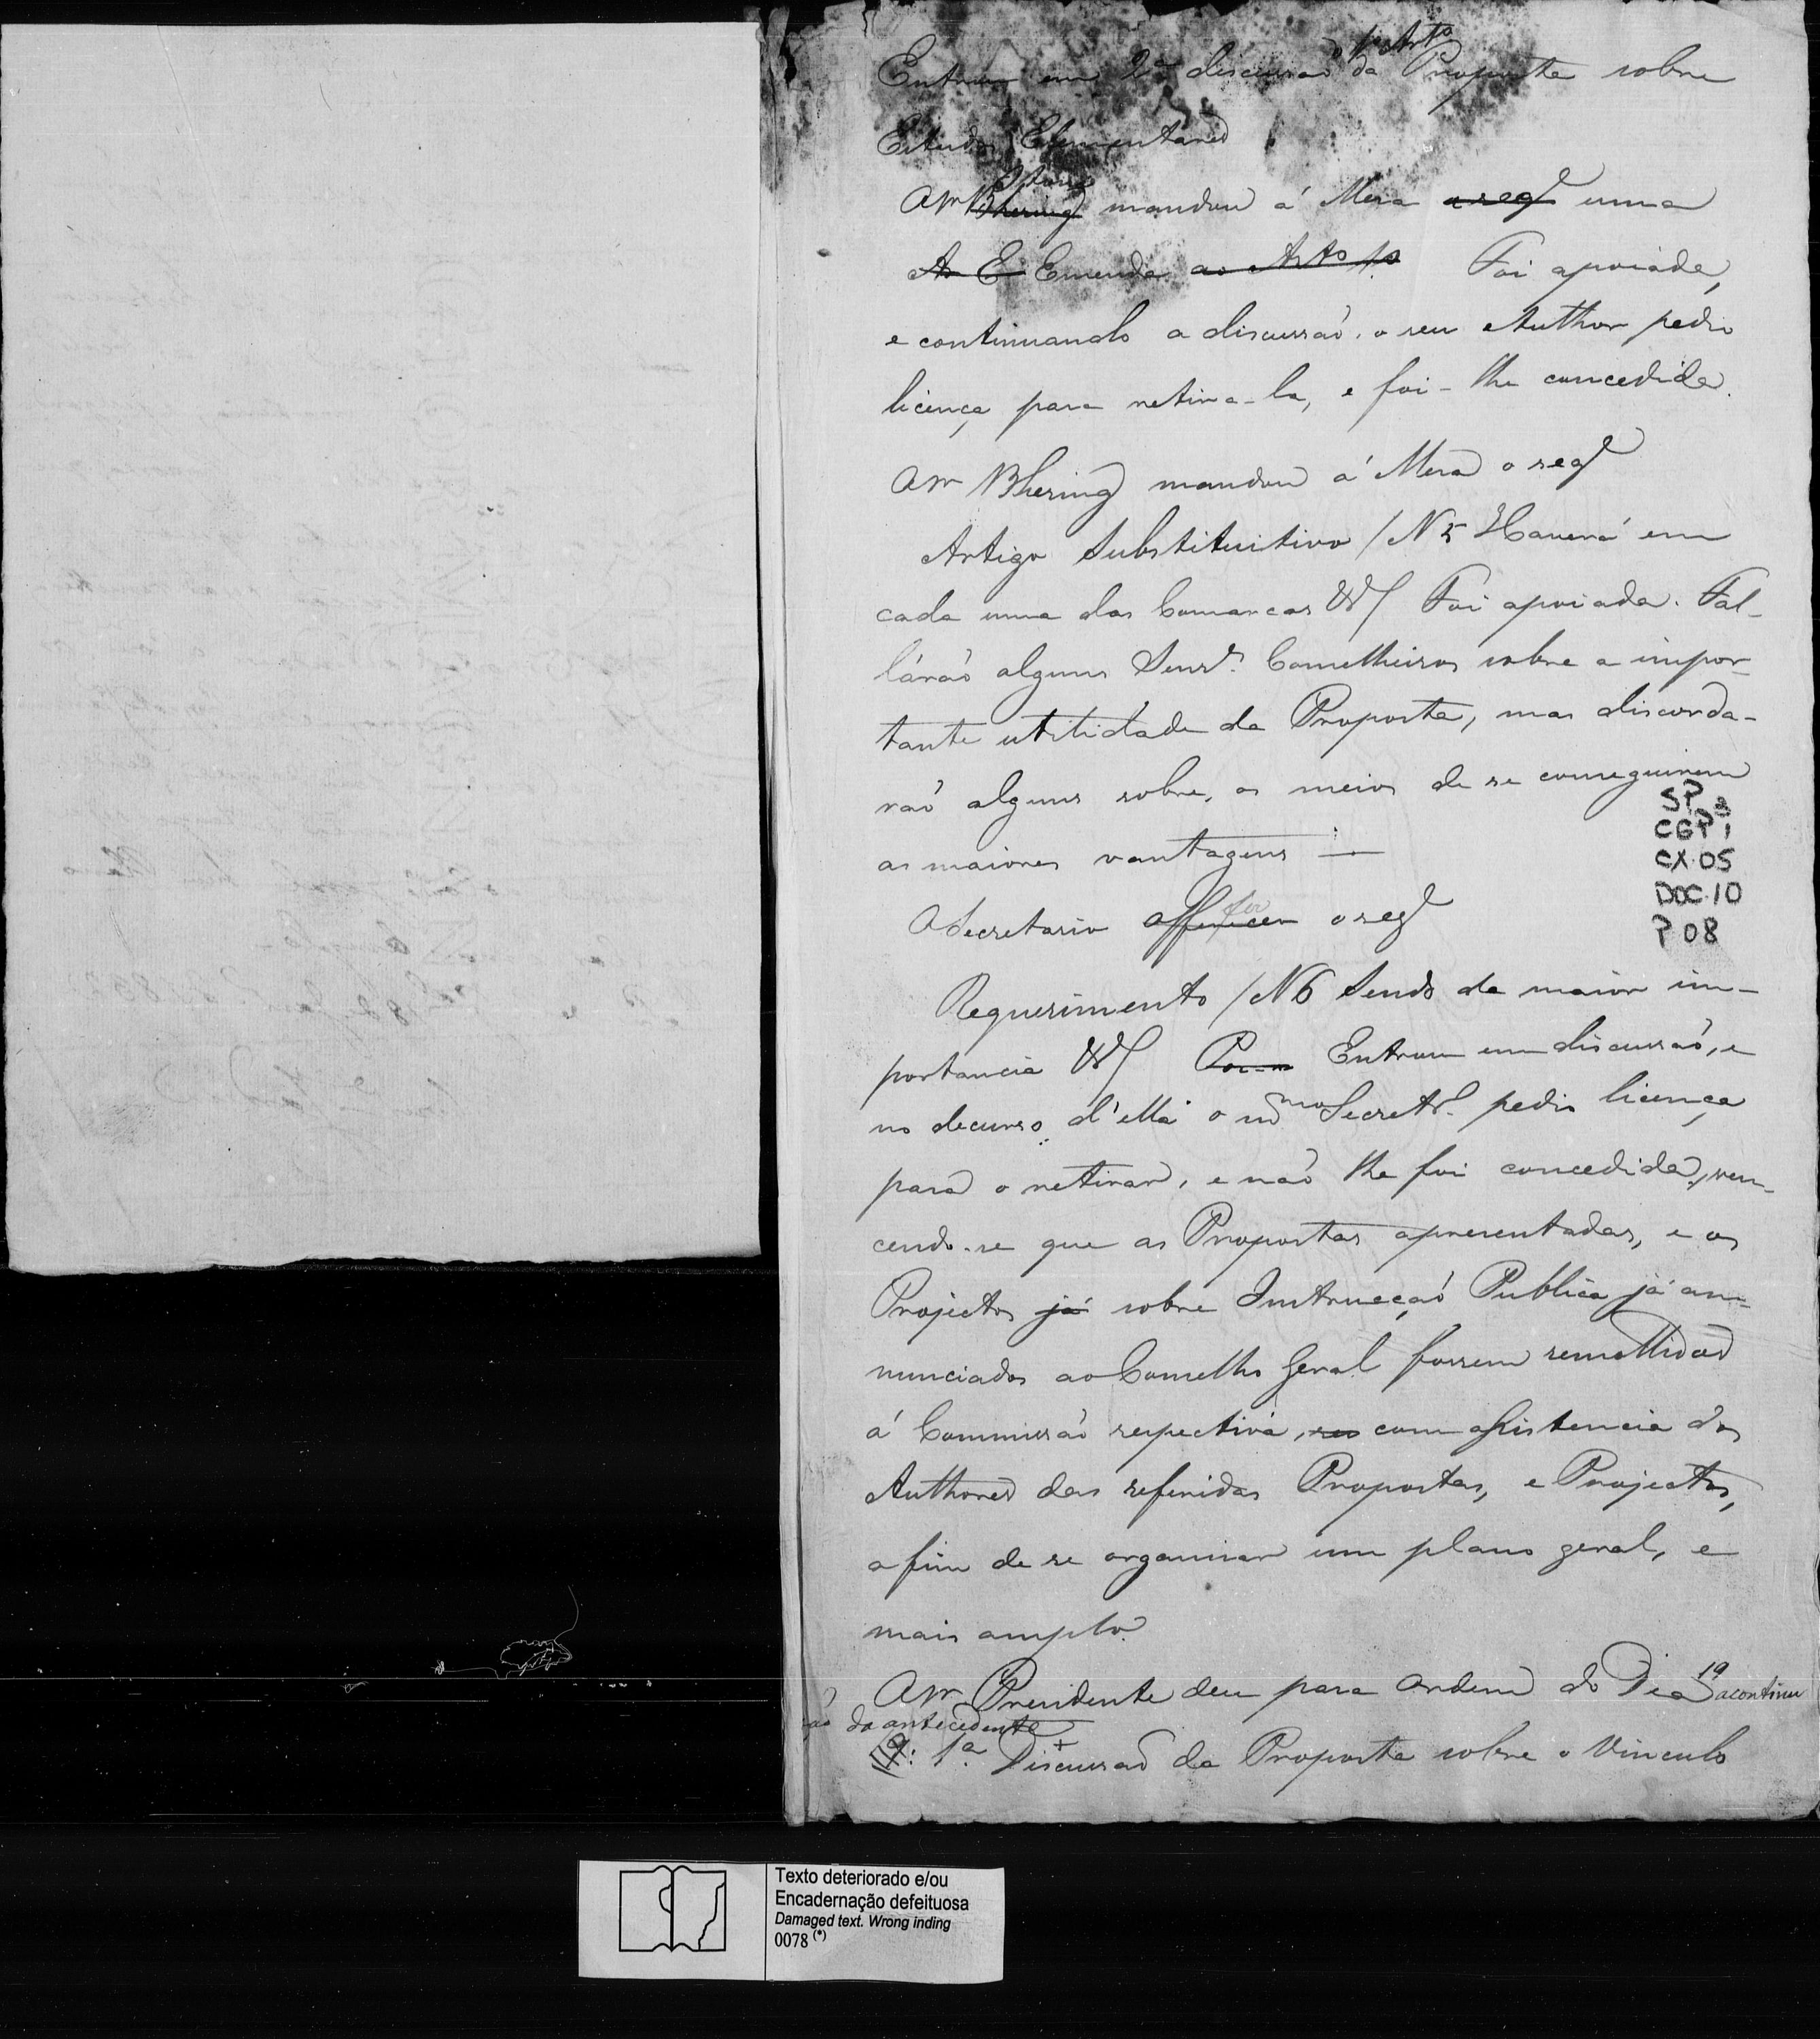 Entrou em 2ª discussaõ o 1º Artº da Proposta sobre
Estudos Elementares
O Sr Bhering mandou á Mesa o segᵉ uma
As E Emenda ao Artº 1º Foi apoiada,
e continuando a discussaõ, o seu Author pedio
licença para retira-la, e foi-lhe concedida.
O Sr Bhering mandou á Mesa o segᵉ
Artigo Substituitivo / N 5 Haverá em
cada uma das Comarcas &ᵃ/ Foi apoiada. Fal-
láraõ alguns Senrˢ. Conselheiros sobre a impor-
tante utilidade da Proposta, mas discorda-
raõ alguns sobre, os meios de se conseguirem
as maiores vantagens —
SP
CGP 1
CX.05
DOC.10
P 08
O Secretario offerecer fez o segᵉ
Requerimento / N 6 Sendo da maior im-
portancia &ᵃ/ Entrou em discussaõ, e
no decurso d'ella o mᵐᵒ Secretº. pedio licença
para o retirar, e naõ lhe foi concedida, ven-
cendo-se que as Propostas apresentadas, e os
Projectos já sobre Instrucçaõ Publica já an-
nunciados ao Conselho Geral fossem remettidos
á Commissaõ respectiva, com assistencia dos
Authores das referidas Propostas, e Projectos,
a fim de se organisar um plano geral, e
mais amplo.
O Sr Presidente deu para Ordem do Dia 19 a continu
aõ da antecedente
1ª. Discussaõ da Proposta sobre o Vinculo
Texto deteriorado e/ou
Encadernação defeituosa
Damaged text. Wrong inding
0078 (*)